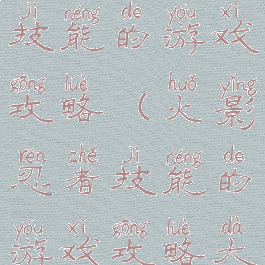 jì néng de yóu xì
技能的游戏
gōng lüè huǒ yǐng
攻略（火影
rěn zhě jì néng de
忍者技能的
yóu xì gōng lüè dà
游戏攻略大